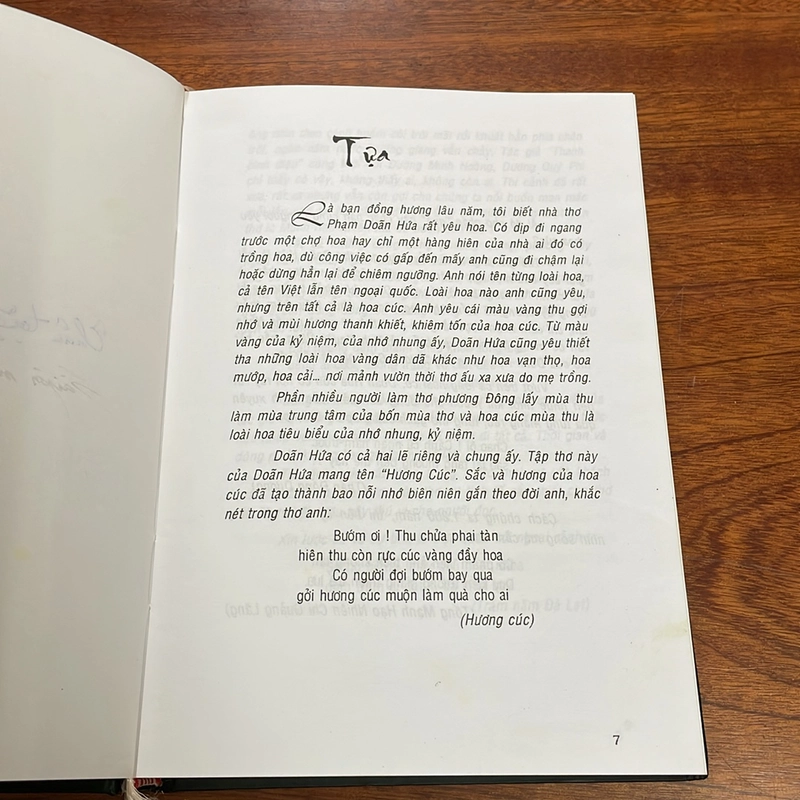 Tựa
Là bạn đồng hương lâu năm, tôi biết nhà thơ
Phạm Doãn Hứa rất yêu hoa. Có dịp đi ngang
trước một chợ hoa hay chỉ một hàng hiên của nhà ai đó có
trồng hoa, dù công việc có gấp đến mấy anh cũng đi chậm lại
hoặc dừng hẳn lại để chiêm ngưỡng. Anh nói tên từng loài hoa,
cả tên Việt lẫn tên ngoại quốc. Loài hoa nào anh cũng yêu,
nhưng trên tất cả là hoa cúc. Anh yêu cái màu vàng thu gợi
nhớ và mùi hương thanh khiết, khiêm tốn của hoa cúc. Từ màu
vàng của kỷ niệm, của nhớ nhung ấy, Doãn Hứa cũng yêu thiết
tha những loài hoa vàng dân dã khác như hoa vạn thọ, hoa
mướp, hoa cải... nơi mảnh vườn thời thơ ấu xa xưa do mẹ trồng.
Phần nhiều người làm thơ phương Đông lấy mùa thu
làm mùa trung tâm của bốn mùa thơ và hoa cúc mùa thu là
loài hoa tiêu biểu của nhớ nhung, kỷ niệm.
Doãn Hứa có cả hai lẽ riêng và chung ấy. Tập thơ này
của Doãn Hứa mang tên “Hương Cúc”. Sắc và hương của hoa
cúc đã tạo thành bao nỗi nhớ biên niên gắn theo đời anh, khắc
nét trong thơ anh:
Bướm ơi ! Thu chửa phai tàn
hiên thu còn rực cúc vàng đầy hoa
Có người đợi bướm bay qua
gởi hương cúc muộn làm quà cho ai
(Hương cúc)
7